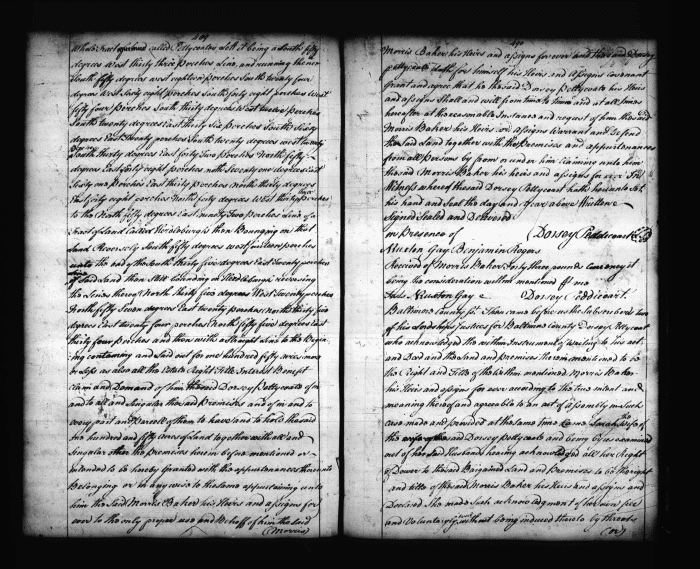 489
whole Tract called Pettycoates Loft it being a South fifty
degrees West thirty three perches Line, and running thence
South fifty degrees west eighteen perches South twenty four
degrees West sixty eight perches South forty eight perches West
fifty four perches South thirty degrees West twelve perches
South twenty degrees East thirty six perches South sixty
degrees East twenty perches South twenty degrees west twenty
South thirty degrees East forty two perches North fifty
degrees East forty eight perches North Seventy one degrees East
sixty one perches East thirty perches North thirty degrees
East forty eight perches North forty degrees West thirty perches
to the North fifty degrees East ninety two perches Line of a
Tract of Land called then Bounding on that
Land Reversely South fifty degrees west fifteen perches
unto the end of the South thirty five degrees East twenty perches
of said Land then Still bounding on reversing
the Lines thereof North thirty five degrees West Twenty perches
North fifty Seven degrees East twenty perches North thirty five
degrees East twenty four perches North fifty five degrees East
thirty four perches and then with a straight Line to the Begin-
ing containing and laid out for one hundred fifty acres more
or less as also all the Estate Right Title Interest Benefit
claim and Demand of him the said Dorsey Pettycoate of in
and to all and Singular the said Premisses and of in and to
every part and parcell of them to have and to hold the said
one hundred and fifty acres of Land together with all and
Singular other the premises herein before mentioned or
intended to be hereby granted with the appurtenances thereunto
Belonging or in any wise to the same appertaining unto
him the Said Morris Baker his Heirs and assigns for
ever to the only proper use and Behoof of him the said
(Morris)
490
Morris Baker his Heirs and assigns for ever and the said Dorsey
Pettycoate doth for himself his Heirs and assigns Covenant
Grant and agree that he the said Dorsey Pettycoate his Heirs
and assigns Shall and will from time to time and at all times
hereafter at the reasonable Instance and request of him the said
Morris Baker his Heirs or assigns Warrant and Defend
the said Land together with the Premises and appurtenances
from all persons by from or under him Claiming unto him
the said Morris Baker his heirs and assigns for ever In
Witness whereof the said Dorsey Pettycoate hath hereunto Set
his hand and Seal the day and year above Written
Signed Sealed and Delivered
in presence of Dorsey Peddicoart
Neuton Gay Benjamin Rogers
Received of Morris Baker Forty three pounds currency it
being the consideration within mentioned me
Neuton Gay Dorsey Peddicoart.
Baltimore County Sct. Then came before us the Subscribers two
of his Lordships Justices for Baltimore County Dorsey Pettycoate
who acknowledged the within Instrument of writing to be his act
and Deed and the Land and premises therein mentioned to be
the Right and Title of the within mentioned Morris Baker
his Heirs and assigns for ever according to the true intent and
meaning thereof and agreeable to an act of assembly in Such
case made and provided at the same time Came Sarah the wife of
the said Dorsey Pettycoate and being by us examined
out of her said Husbands hearing acknowledged all her Right
of Dower to the said Bargained Land and Premises to be the right
and title of the said Morris Baker his Heirs and assigns and
Declared She made Such acknowledgment of her own free
and Voluntary will without being induced thereto by threats
(or)